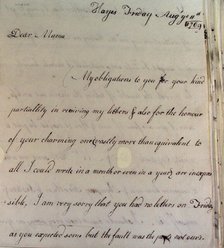 Hayes Friday Aug
Dear Mama
My obligations to you for your kind
partiality in receiving my letters & also for the honour
of your charming one exactly more than equivalent to
all I could write in a month or even in a year are inexpres
sible, I am very sorry that you had no letters on Friday
as you expected some but the fault was the post not ours